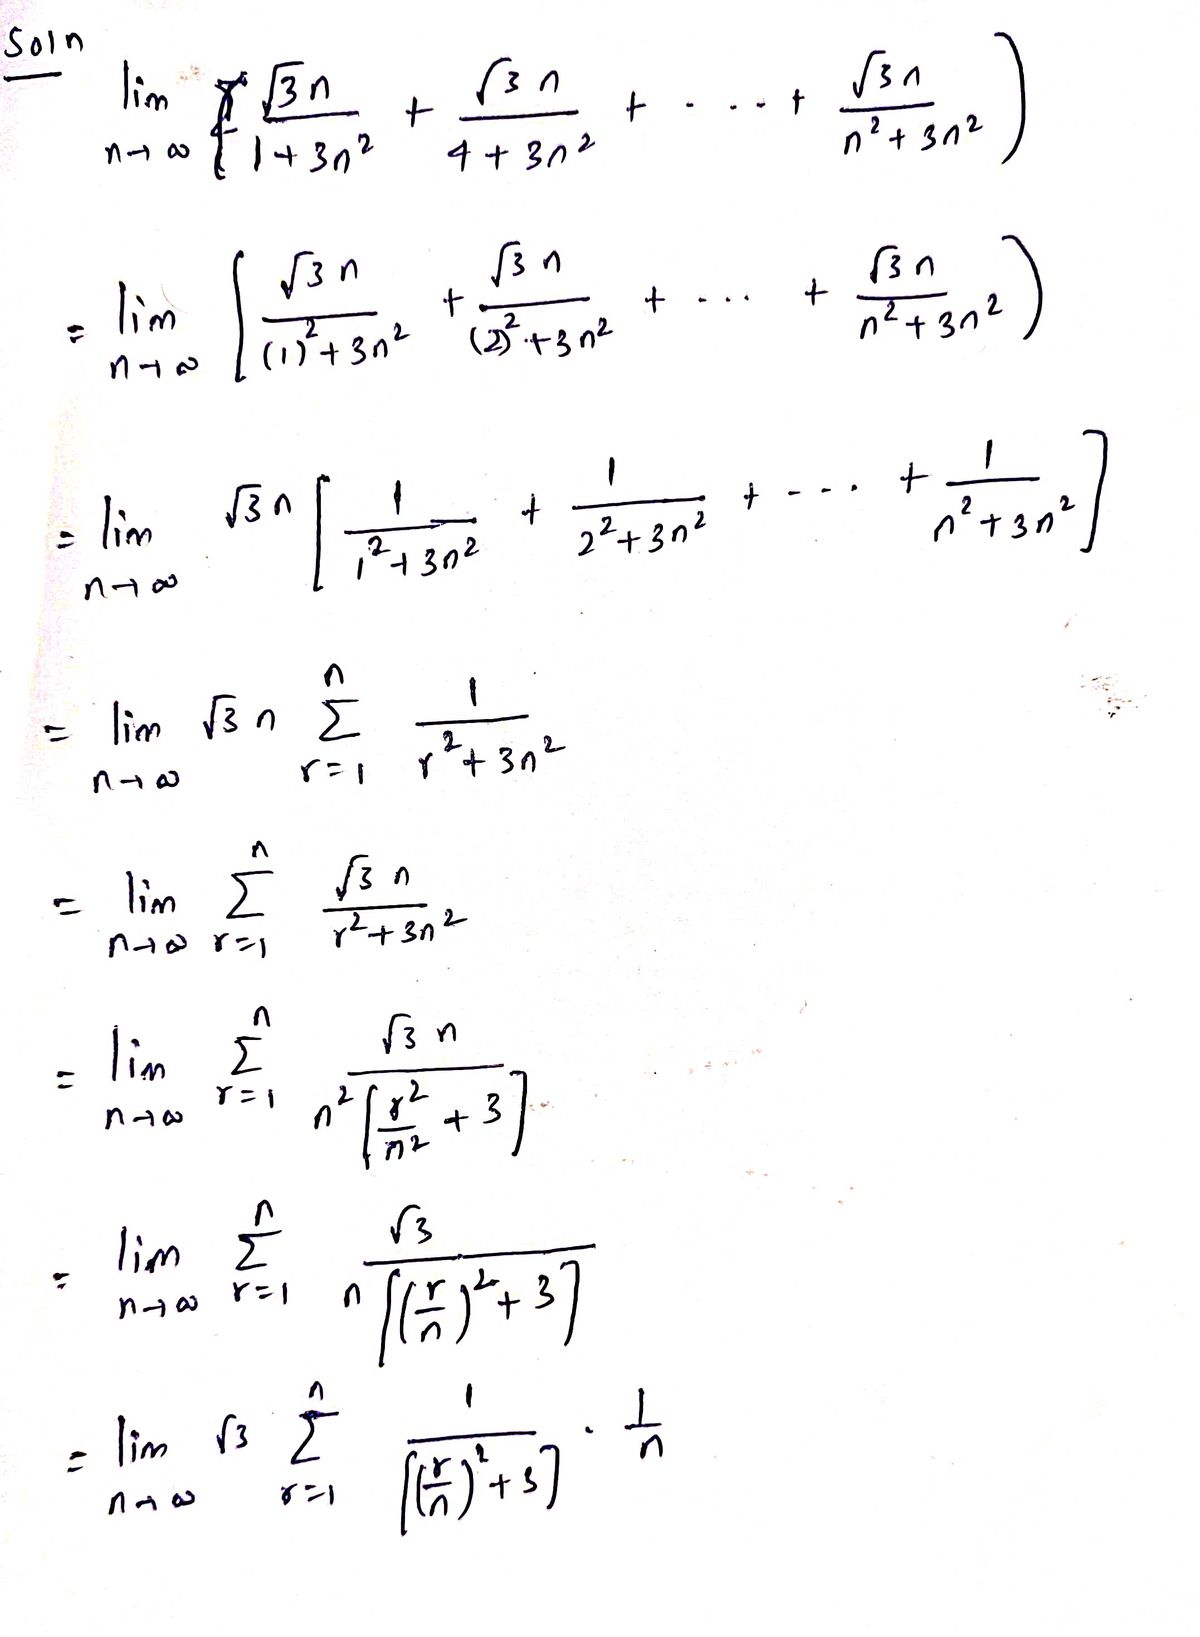 Soln
lim n→∞ [ √3n/(1+3n²) + √3n/(4+3n²) + ---- + √3n/(n²+3n²) )
= lim n→∞ [ √3n/((1)²+3n²) + √3n/((2)²+3n²) + ---- + √3n/(n²+3n²) )
= lim n→∞ √3n [ 1/(1²+3n²) + 1/(2²+3n²) + ---- + 1/(n²+3n²) ]
= lim n→∞ √3n Σ r=1 n 1/(r²+3n²)
= lim n→∞ Σ r=1 n √3n/(r²+3n²)
= lim n→∞ Σ r=1 n √3n/(n²[r²/n²+3])
= lim n→∞ Σ r=1 n √3/(n[(r/n)²+3])
= lim n→∞ √3 Σ r=1 n 1/[(r/n)²+3] · 1/n